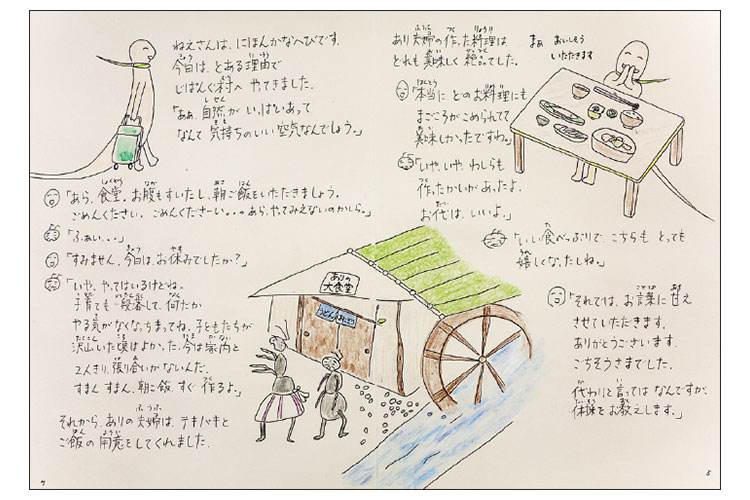 ねえさんは、にほんかなへびです。
今日は、とある理由で
じぱんぐ村へ やってきました。
「あぁ、自然が いっぱいあって
なんて 気持ちのいい 空気なんでしょう。」
「あら、食堂。お腹もすいたし、朝ご飯をいただきましょう。
ごめんください。ごめんくださーい。。。あら、やってみえないのかしら。」
「ふぁい...」
「すみません、今日は、お休みでしたか?」
「いや、やってはいるけどね。
子育ても一段落して、何だか
やる気がなくなっちまってね。子どもたちが
沢山いた頃はよかった。今は家内と
2人きり、張り合いがないんだ。
すまん、すまん、朝ご飯、すぐ作るよ。」
それから、ありの夫婦は、テキパキと
ご飯の用意をしてくれました。
ありの
大食堂
うどん
7
あり夫婦の作った料理は、
どれも美味しく 絶品でした。
まぁ おいしそう
いただきます
「本当に どのお料理にも
まごころがこめられてて
美味しかったですわ。」
「いや、いや、わしらも
作ったかいが、あったよ。
お代は、いいよ。」
「いい食べっぷりで、こちらも とっても
嬉しくなったしね。」
「それでは、お言葉に甘え
させていただきます。
ありがとうございます。
ごちそうさまでした。
代わりと言っては なんですが、
体操をお教えします。」
8